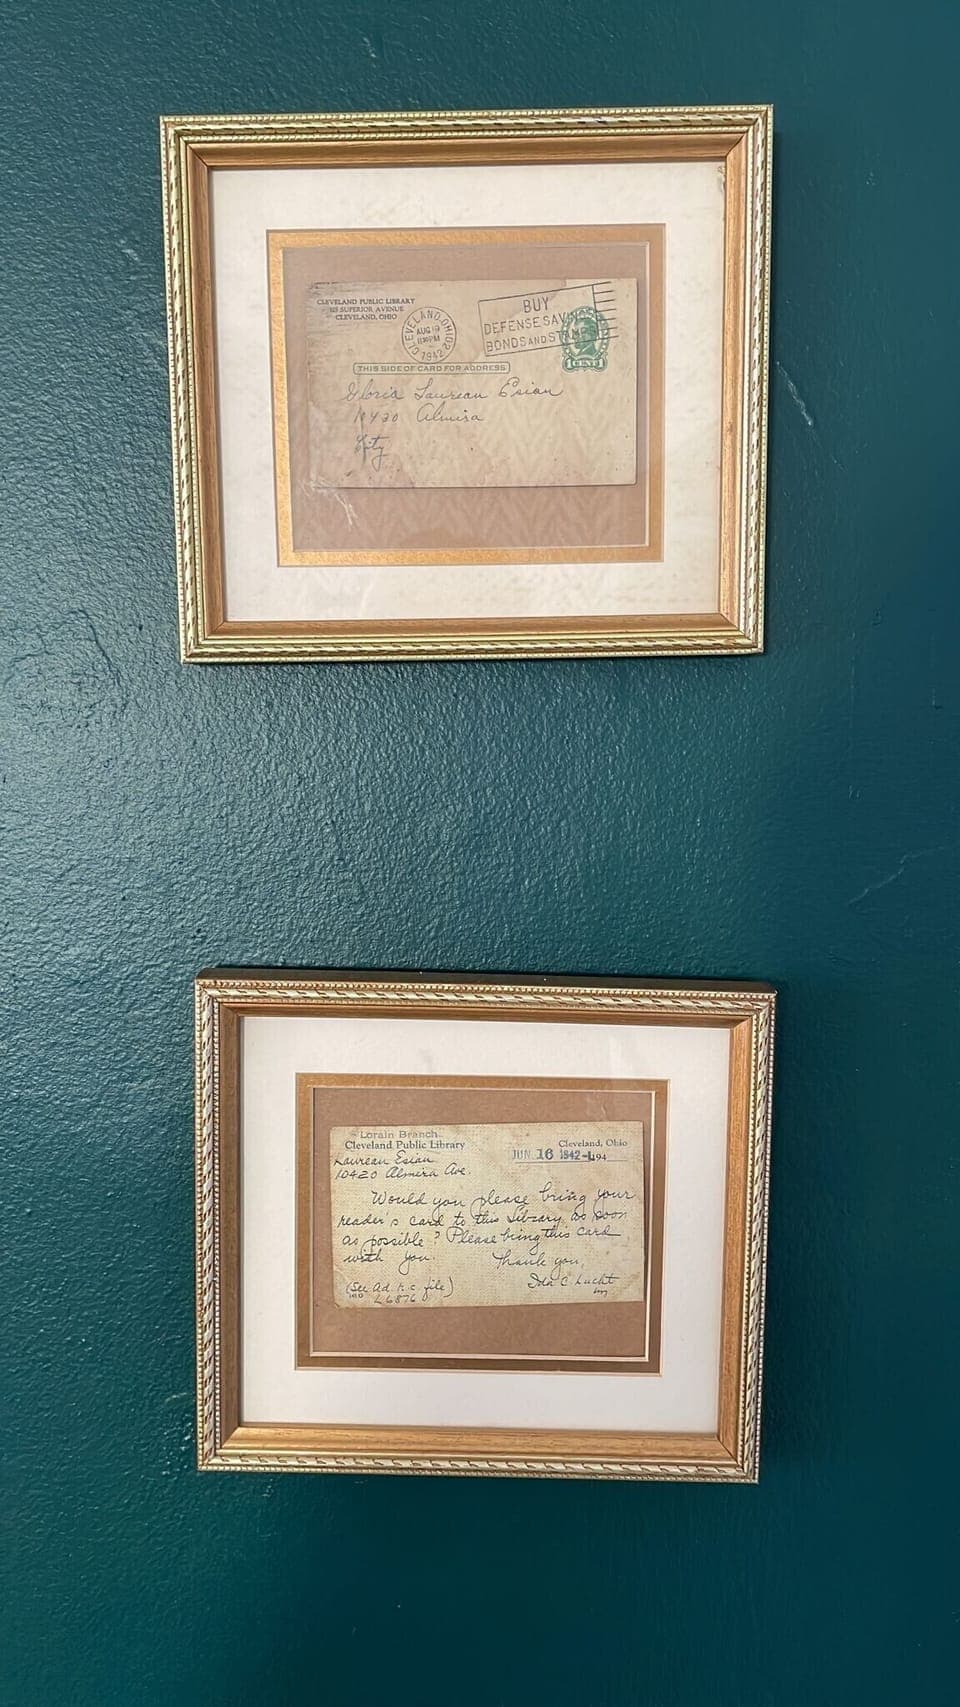 CLEVELAND PUBLIC LIBRARY
325 SUPERIOR AVENUE
CLEVELAND, OHIO
CLEVELAND, OHIO
AUG 19
PM
1942
BUY
DEFENSE SAVINGS
BONDS AND STAMPS
1 CENT
THIS SIDE OF CARD FOR ADDRESS
Gloria Laurean Esian
10420 Almira
City
Lorain Branch
Cleveland Public Library
Cleveland, Ohio
JUN 16 1942-L 194
Laurean Esian
10420 Almira Ave.
Would you please bring your
reader's card to this Library as soon
as possible? Please bring this card
with you. Thank you,
Ida C. Lucht
(See Ad. r. c. file)
L6876